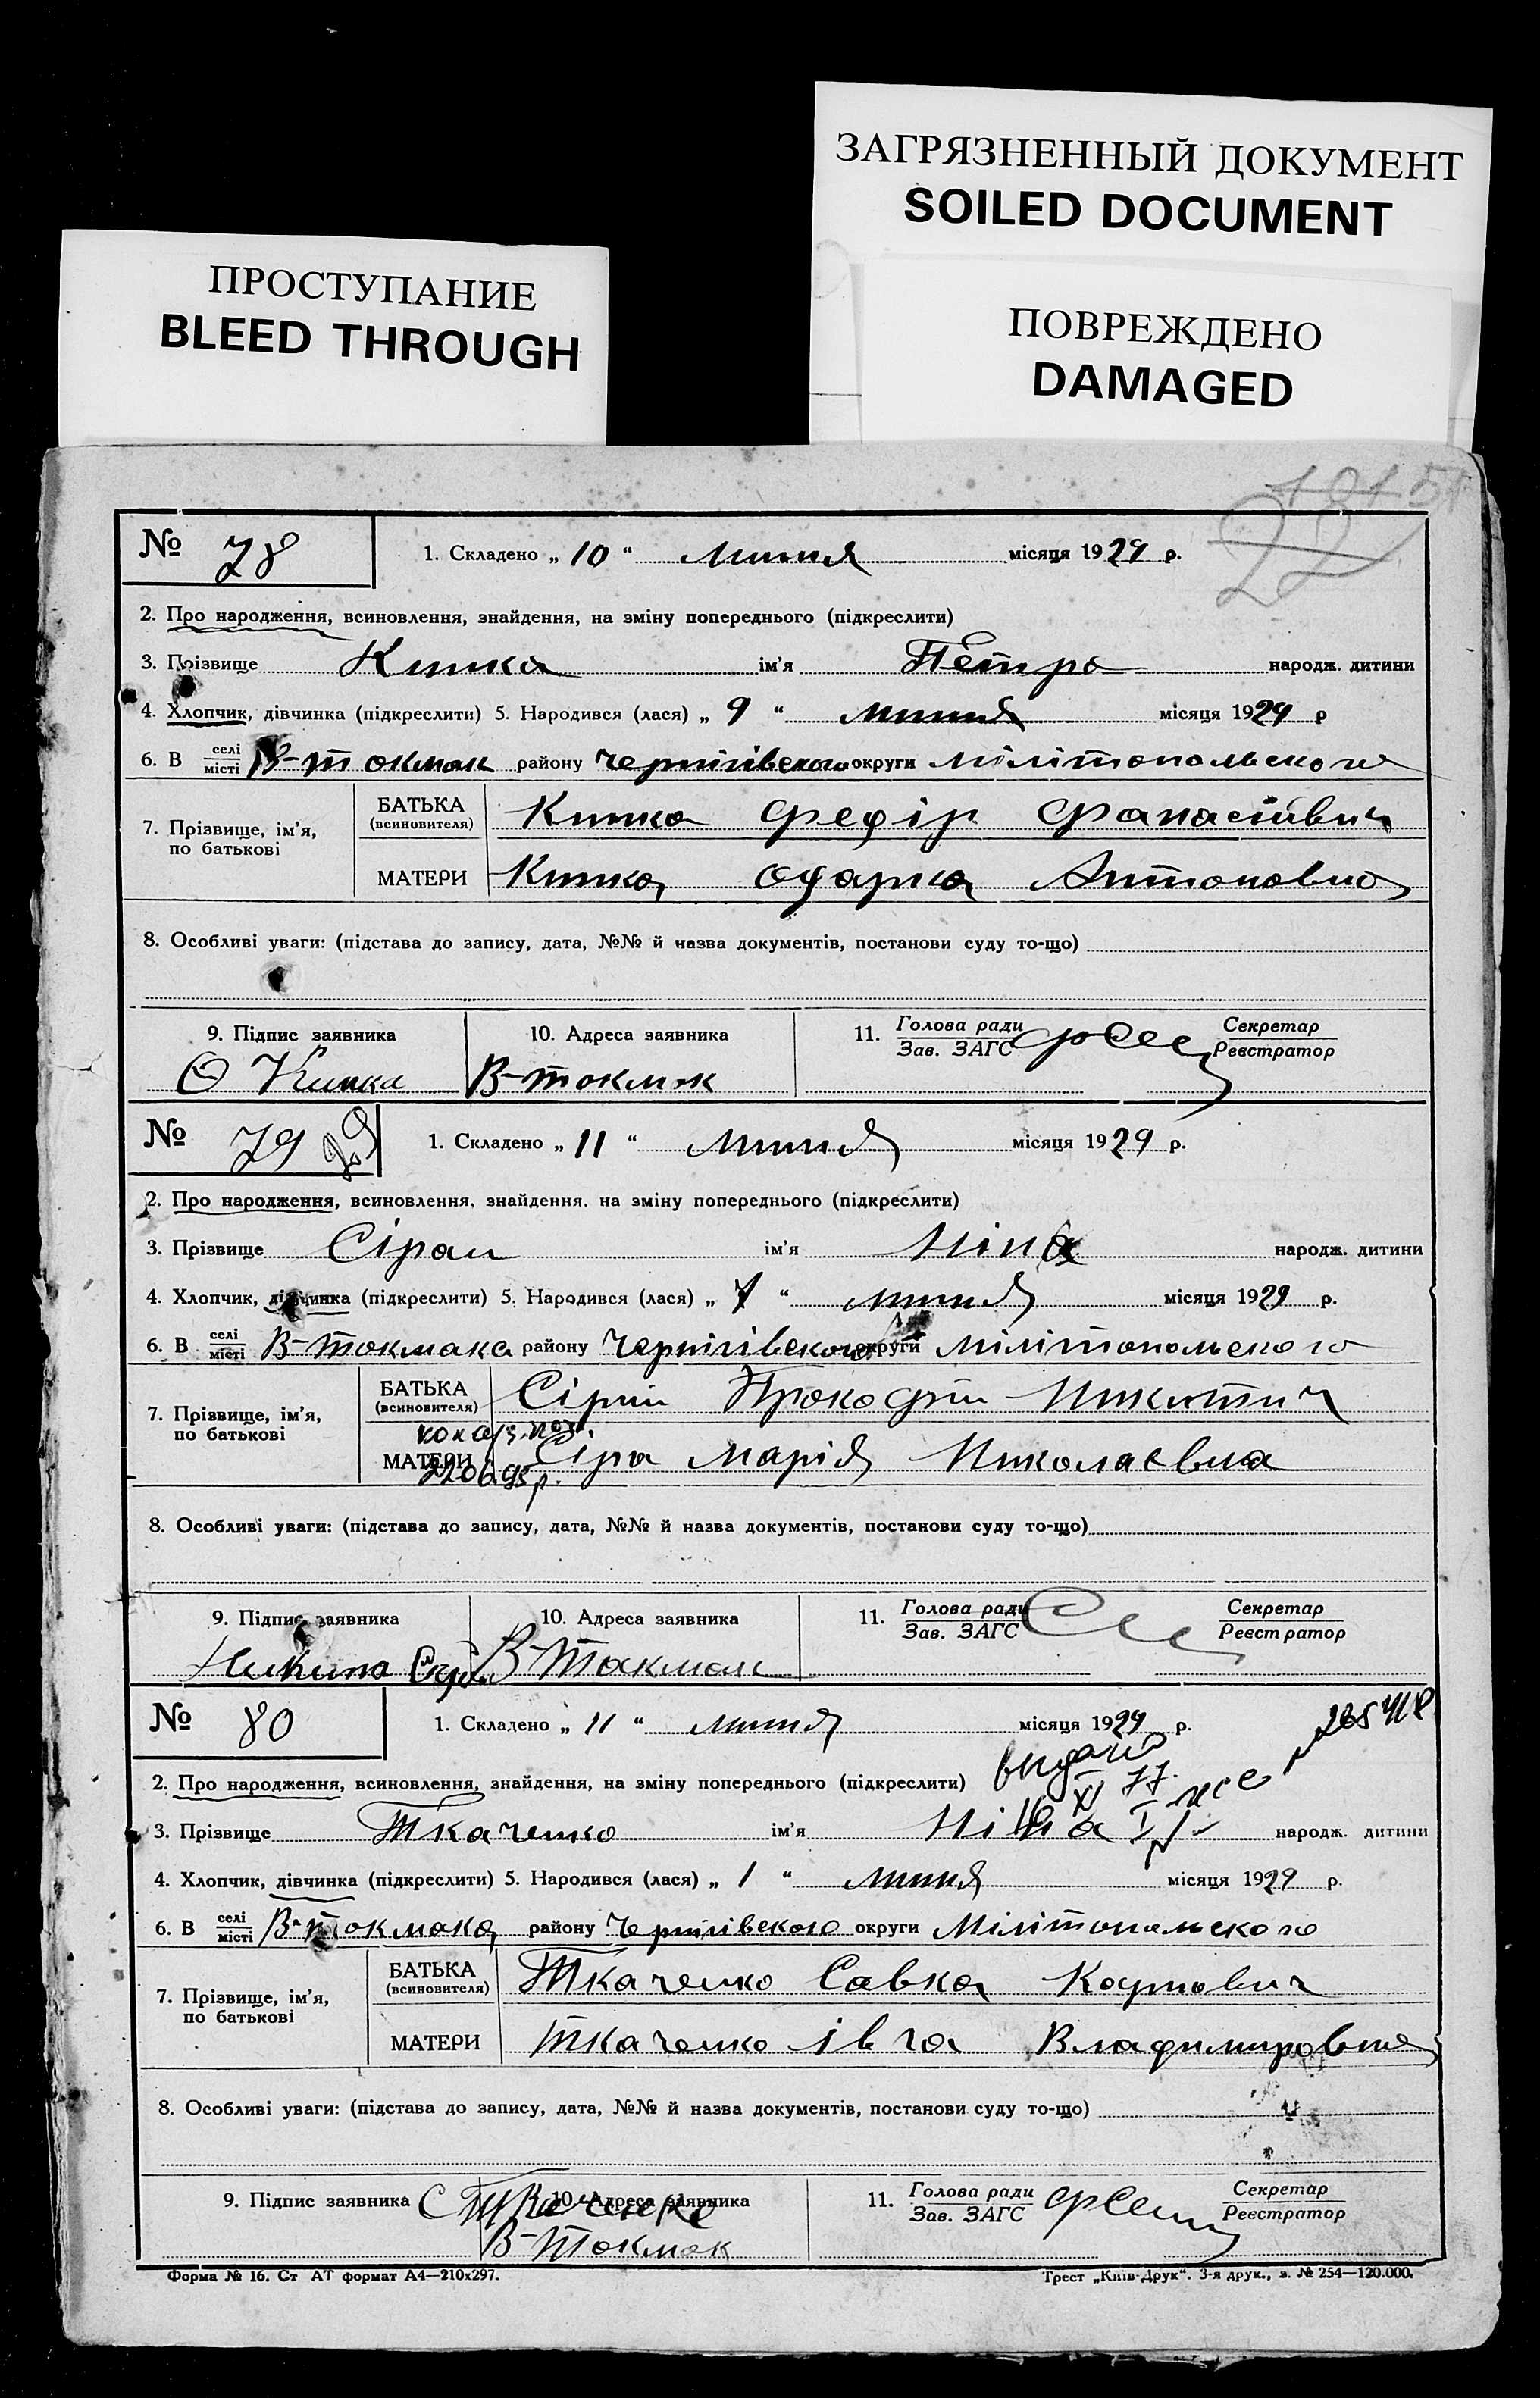 ЗАГРЯЗНЕННЫЙ ДОКУМЕНТ
SOILED DOCUMENT
ПРОСТУПАНИЕ
BLEED THROUGH
ПОВРЕЖДЕНО
DAMAGED
22
№ 78 1. Складено „ 10 “ липня місяця 1929 р.
2. Про народження, всиновлення, знайдення, на зміну попереднього (підкреслити)
3. Прізвище Кишка ім'я Петро народж. дитини
4. Хлопчик, дівчинка (підкреслити) 5. Народився (лася) „ 9 “ липня місяця 1929 р
6. В селі місті В-токмак району Чернігівського округи Мілітопольского
7. Прізвище, ім'я, по батькові БАТЬКА (всиновителя) Кишка Федір Фанасіївич
МАТЕРИ Кишка Одарка Антоновна
8. Особливі уваги: (підстава до запису, дата, №№ й назва документів, постанови суду то-що)
9. Підпис заявника 10. Адреса заявника 11. Голова ради Зав. ЗАГС Секретар Реєстратор
О Кишка В-токмак
№ 79 1. Складено „ 11 “ липня місяця 1929 р.
2. Про народження, всиновлення, знайдення, на зміну попереднього (підкреслити)
3. Прізвище Сірап ім'я Ніна народж. дитини
4. Хлопчик, дівчинка (підкреслити) 5. Народився (лася) „ 7 “ липня місяця 1929 р.
6. В селі місті В-токмака району Чернігівского округи Мілітопольского
7. Прізвище, ім'я, по батькові БАТЬКА (всиновителя) Сірий Прокофій Микитич
МАТЕРИ Сіра Марія Миколаєвна
8. Особливі уваги: (підстава до запису, дата, №№ й назва документів, постанови суду то-що)
9. Підпис заявника 10. Адреса заявника 11. Голова ради Зав. ЗАГС Секретар Реєстратор
В-Токмак
№ 80 1. Складено „ 11 “ липня місяця 1929 р.
видано
2. Про народження, всиновлення, знайдення, на зміну попереднього (підкреслити)
3. Прізвище Ткаченко ім'я Ніна народж. дитини
4. Хлопчик, дівчинка (підкреслити) 5. Народився (лася) „ 1 “ липня місяця 1929 р.
6. В селі місті В-токмака району Чернігівского округи Мілітопольского
7. Прізвище, ім'я, по батькові БАТЬКА (всиновителя) Ткаченко Савка Карпович
МАТЕРИ Ткаченко Івга Владимировна
8. Особливі уваги: (підстава до запису, дата, №№ й назва документів, постанови суду то-що)
9. Підпис заявника С Ткаченко 10. Адреса заявника 11. Голова ради Зав. ЗАГС Секретар Реєстратор
В-Токмак
Форма № 16. Ст АТ формат А4—210х297. Трест „Київ-Друк“. 3-я друк., з. № 254—120.000.